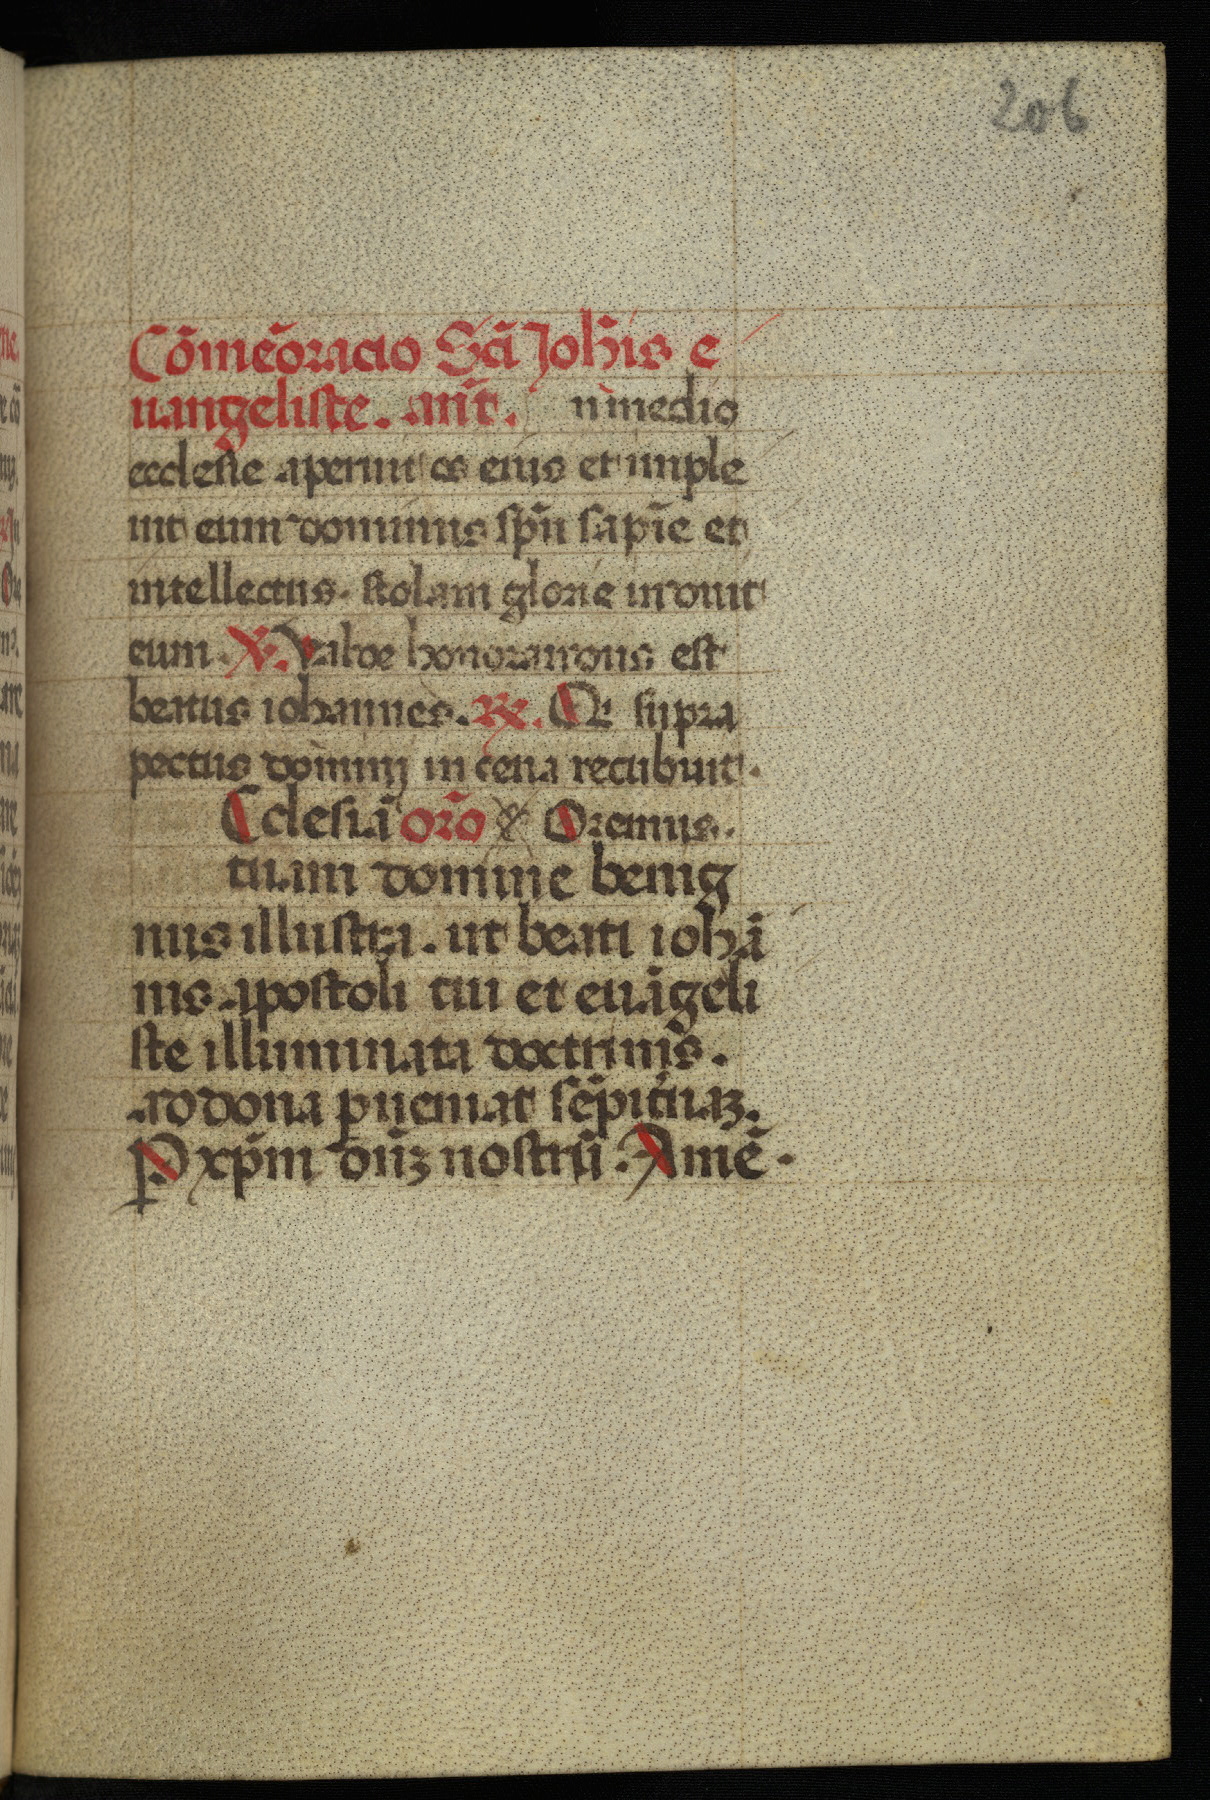 206
Cõmẽoracio Scĩ Joh̃is e
uangeliste. añt. n medio
ecclesie aperuit os eius et imple
uit eum dominus sp̃u sapiẽ et
intellectus. stolam glorie induit
eum. V. Valde honorandus est
beatus iohannes. R. Qui supra
pectus dominj in cena recubuit.
Eclesiã orõ Oremus.
tuam domine benig
nus illustra. ut beati iohã
nis apostoli tui et euãgeli
ste illuminata doctrinis.
ad dona pueniat sẽpit̃na.
P xp̃m dñz nostrũ. Amẽ.